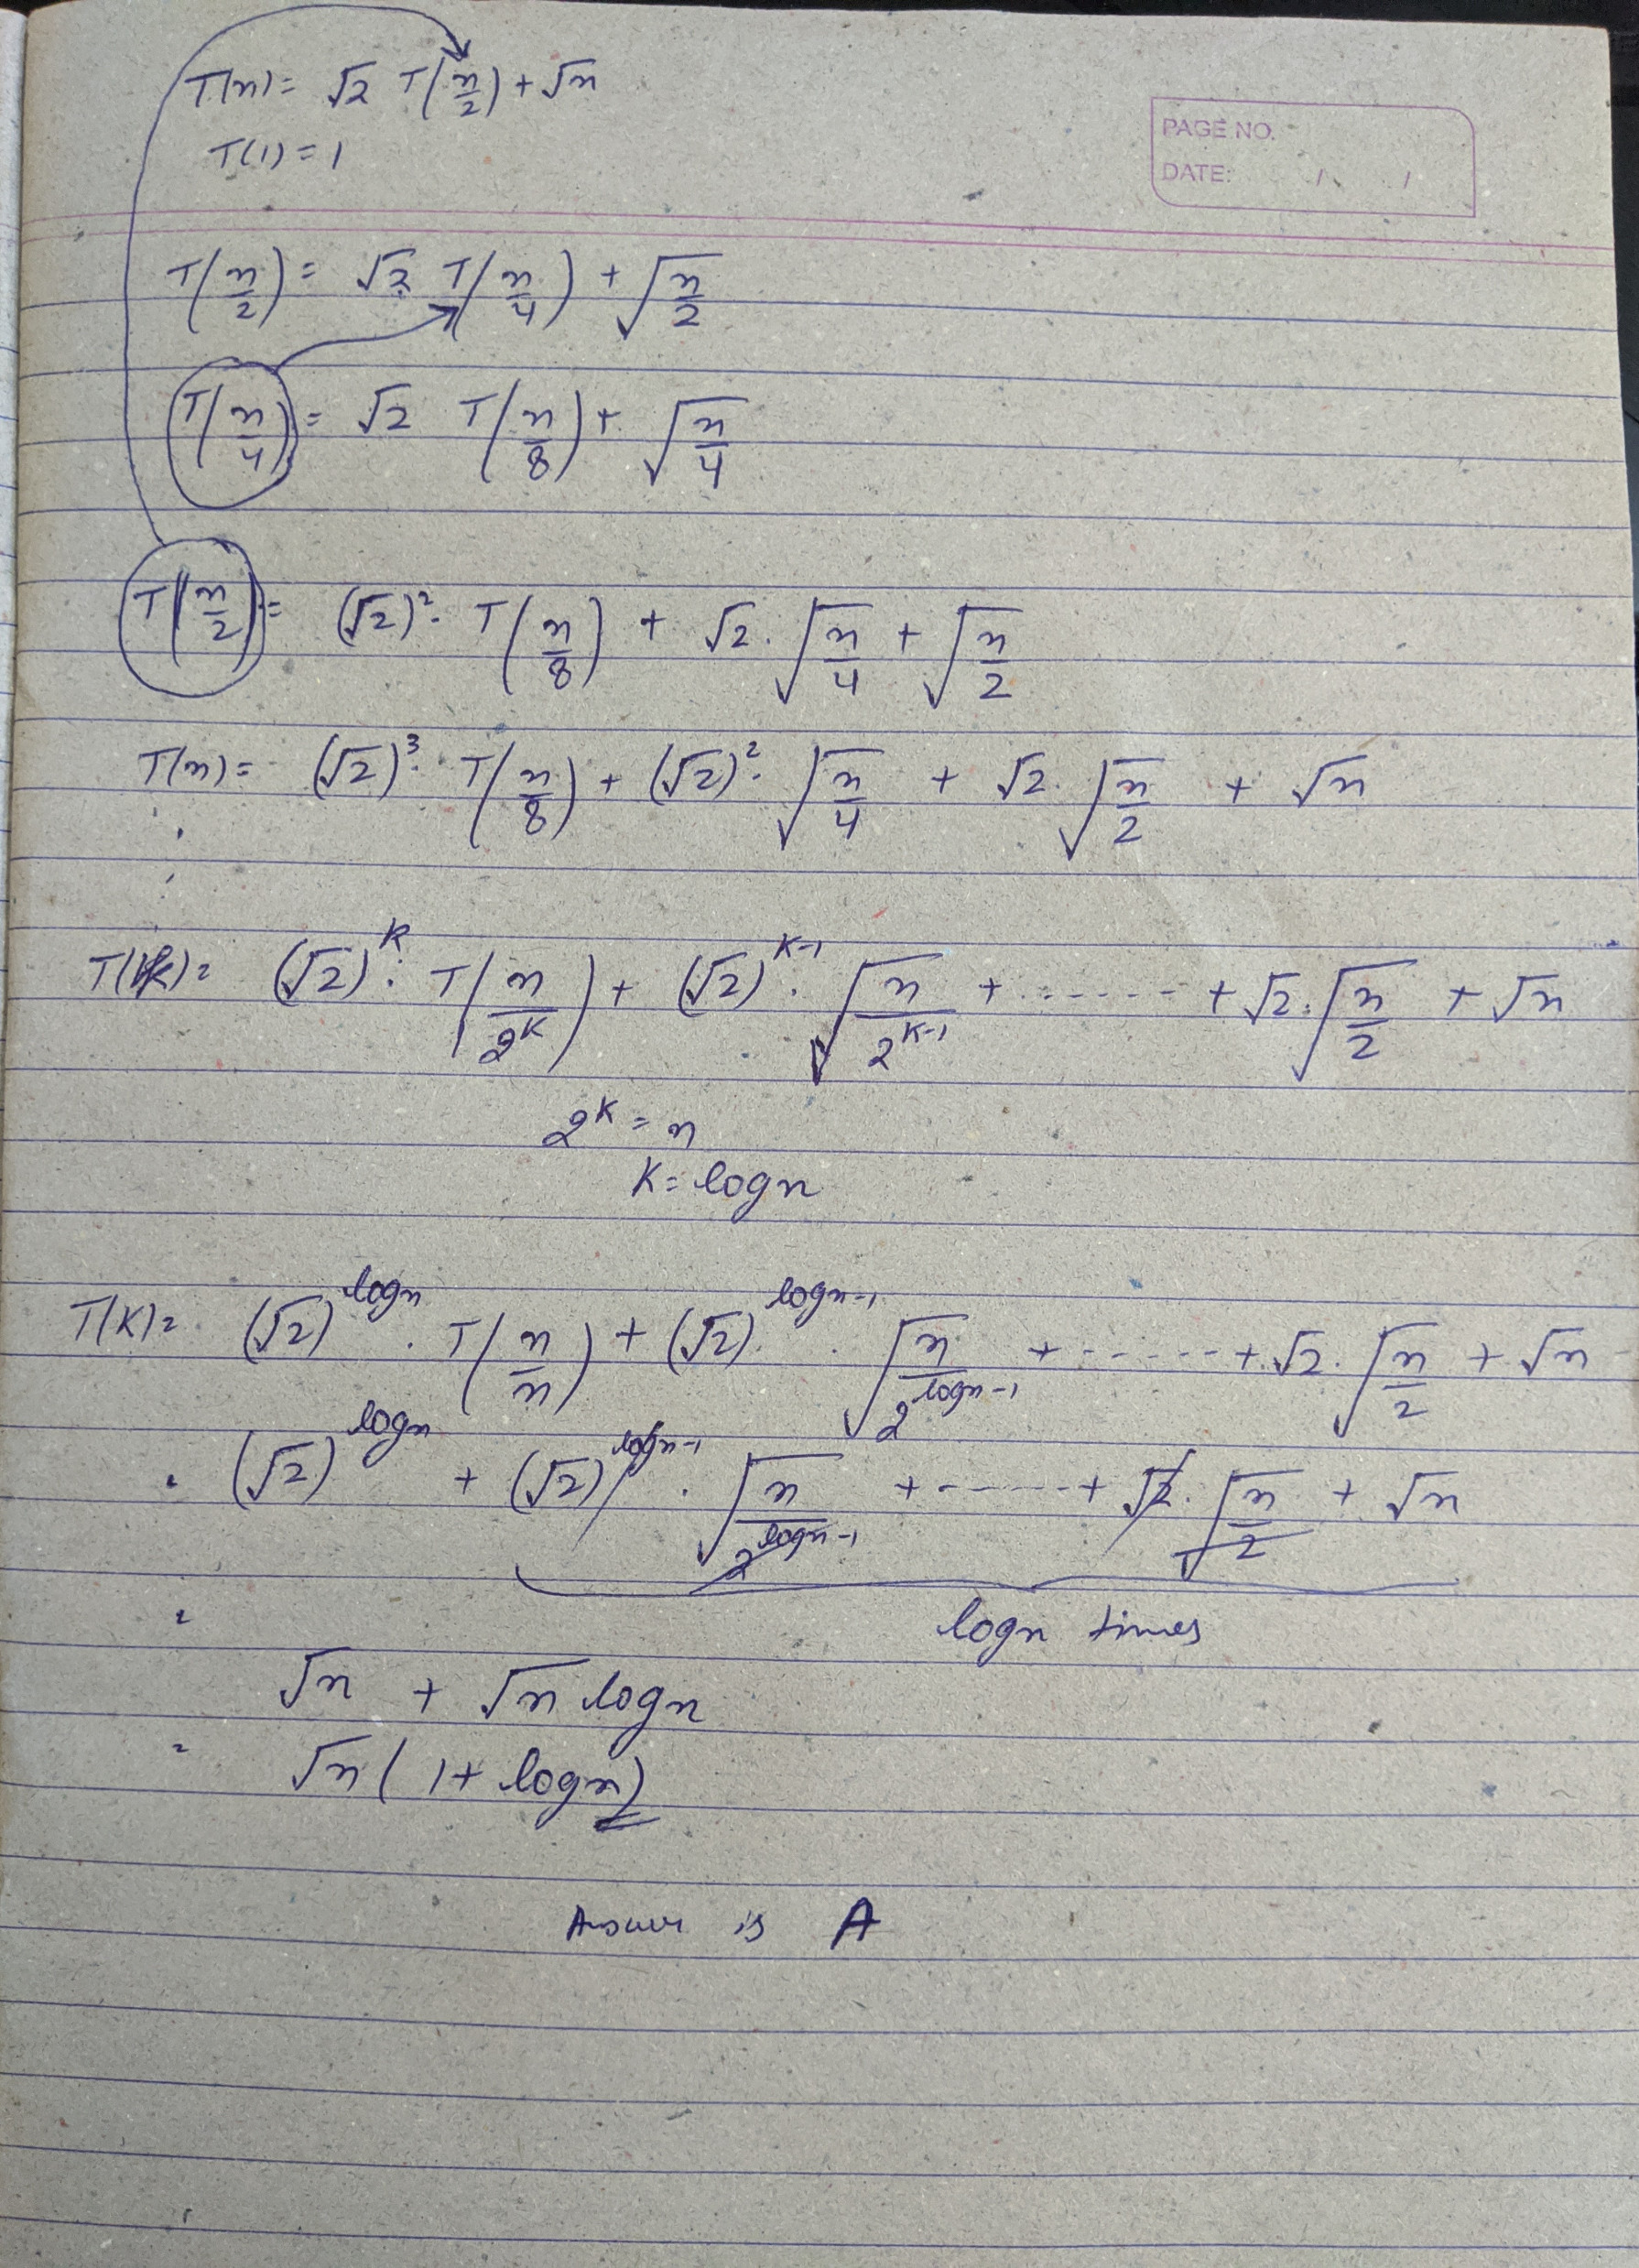 T(n) = √2 T(n/2) + √n
T(1) = 1
PAGE NO.
DATE: / /
T(n/2) = √2 T(n/4) + √(n/2)
T(n/4) = √2 T(n/8) + √(n/4)
T(n/2) = (√2)². T(n/8) + √2 . √(n/4) + √(n/2)
T(n) = (√2)³. T(n/8) + (√2)². √(n/4) + √2. √(n/2) + √n
T(k) = (√2)^k . T(n/2^k) + (√2)^(k-1) . √(n/2^(k-1)) + ...... + √2. √(n/2) + √n
2^k = n
k = logn
T(k) = (√2)^(logn) . T(n/n) + (√2)^(logn-1) . √(n/2^(logn-1)) + ...... + √2. √(n/2) + √n
= (√2)^(logn) + (√2)^(logn-1) . √(n/2^(logn-1)) + ...... + √2. √(n/2) + √n
logn times
= √n + √n logn
= √n (1 + logn)
Answer is A